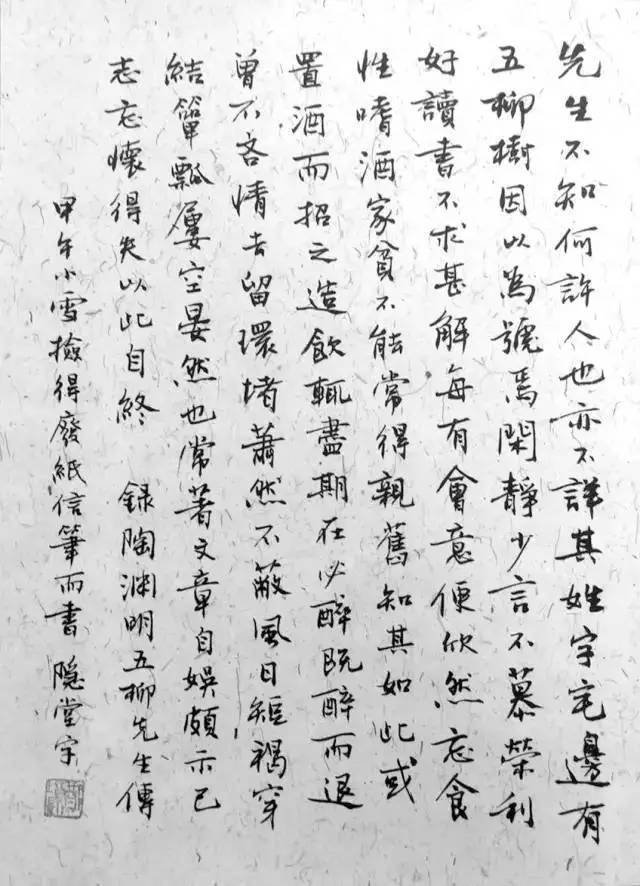 先生不知何許人也亦不詳其姓字宅邊有
五柳樹因以為號焉閑靜少言不慕榮利
好讀書不求甚解每有會意便欣然忘食
性嗜酒家貧不能常得親舊知其如此或
置酒而招之造飲輒盡期在必醉既醉而退
曾不吝情去留環堵蕭然不蔽風日短褐穿
結簞瓢屢空晏然也常著文章自娛頗示己
志忘懷得失以此自終 録陶渊明五柳先生傳
甲午小雪撿得廢紙信筆而書 隐堂字